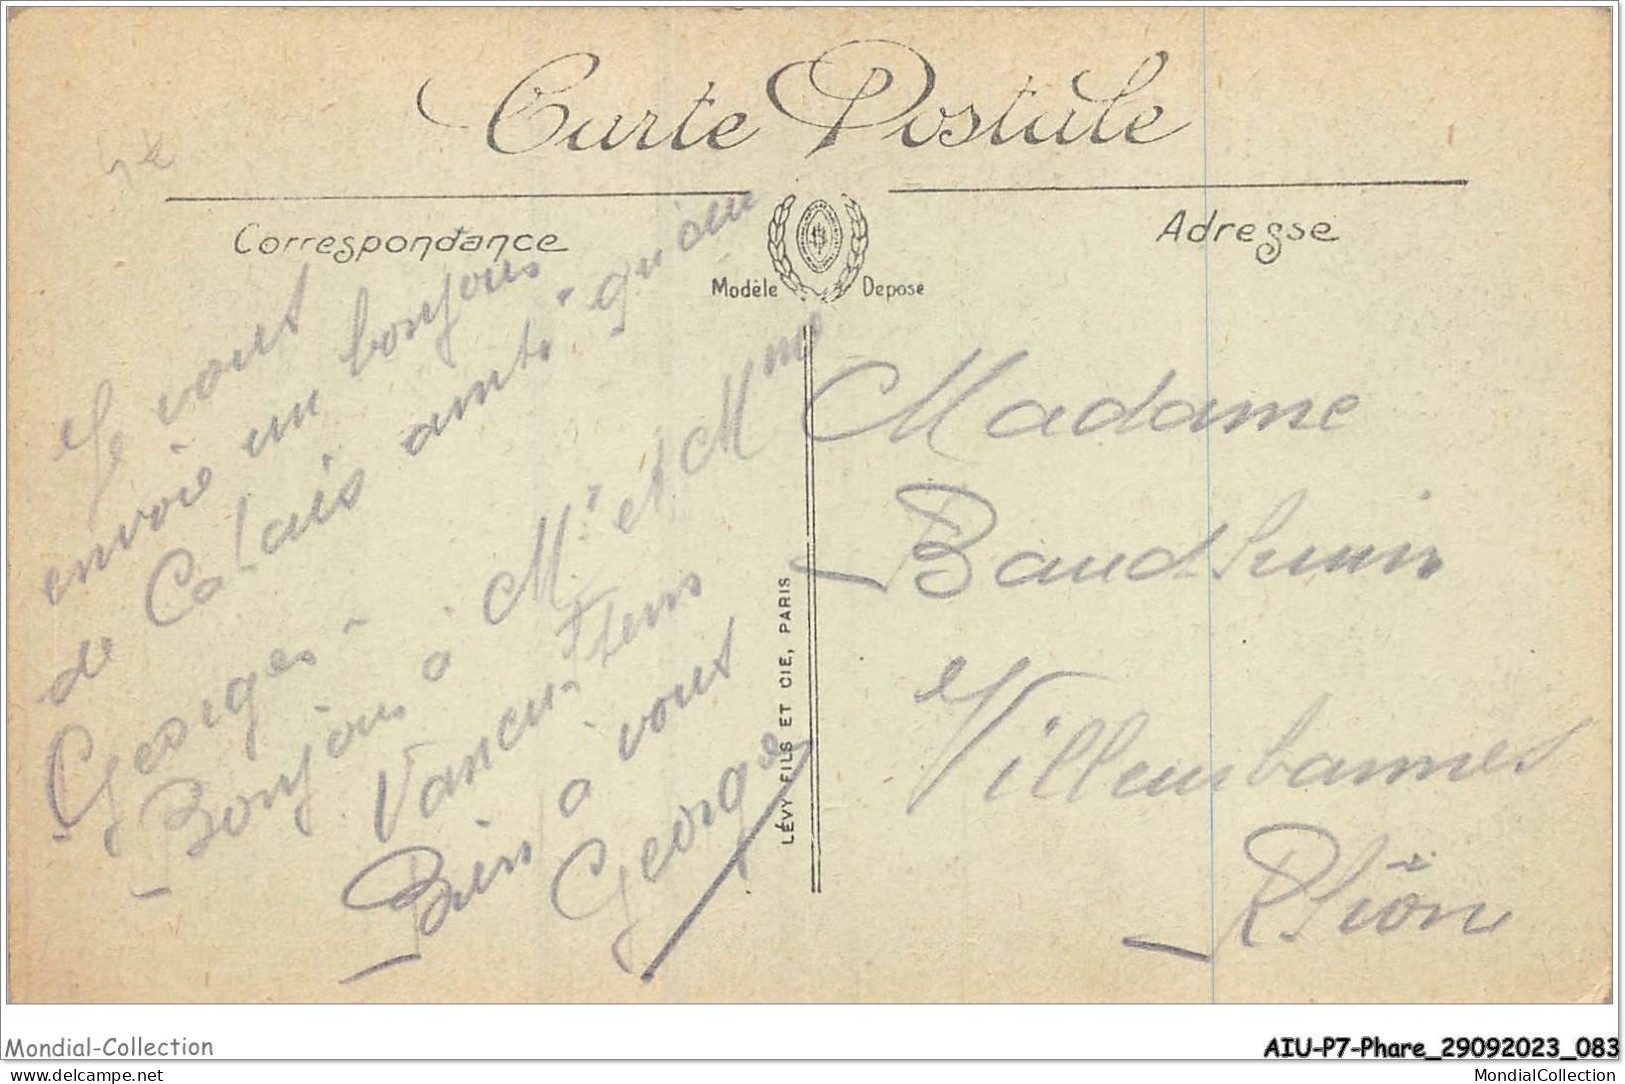 Carte Postale
Correspondance
Adresse
Modèle Deposé
Je vous
envoie un bonjour
de Calais ainsi qu'au
Georges -
Bonjour à Mr et Mme
Bien à vous
Georges
LÉVY FILS ET CIE, PARIS
Madame
Baudhuin
Villeurbannes
Rhôn
Mondial-Collection
AIU-P7-Phare_29092023_083
www.delcampe.net
MondialCollection